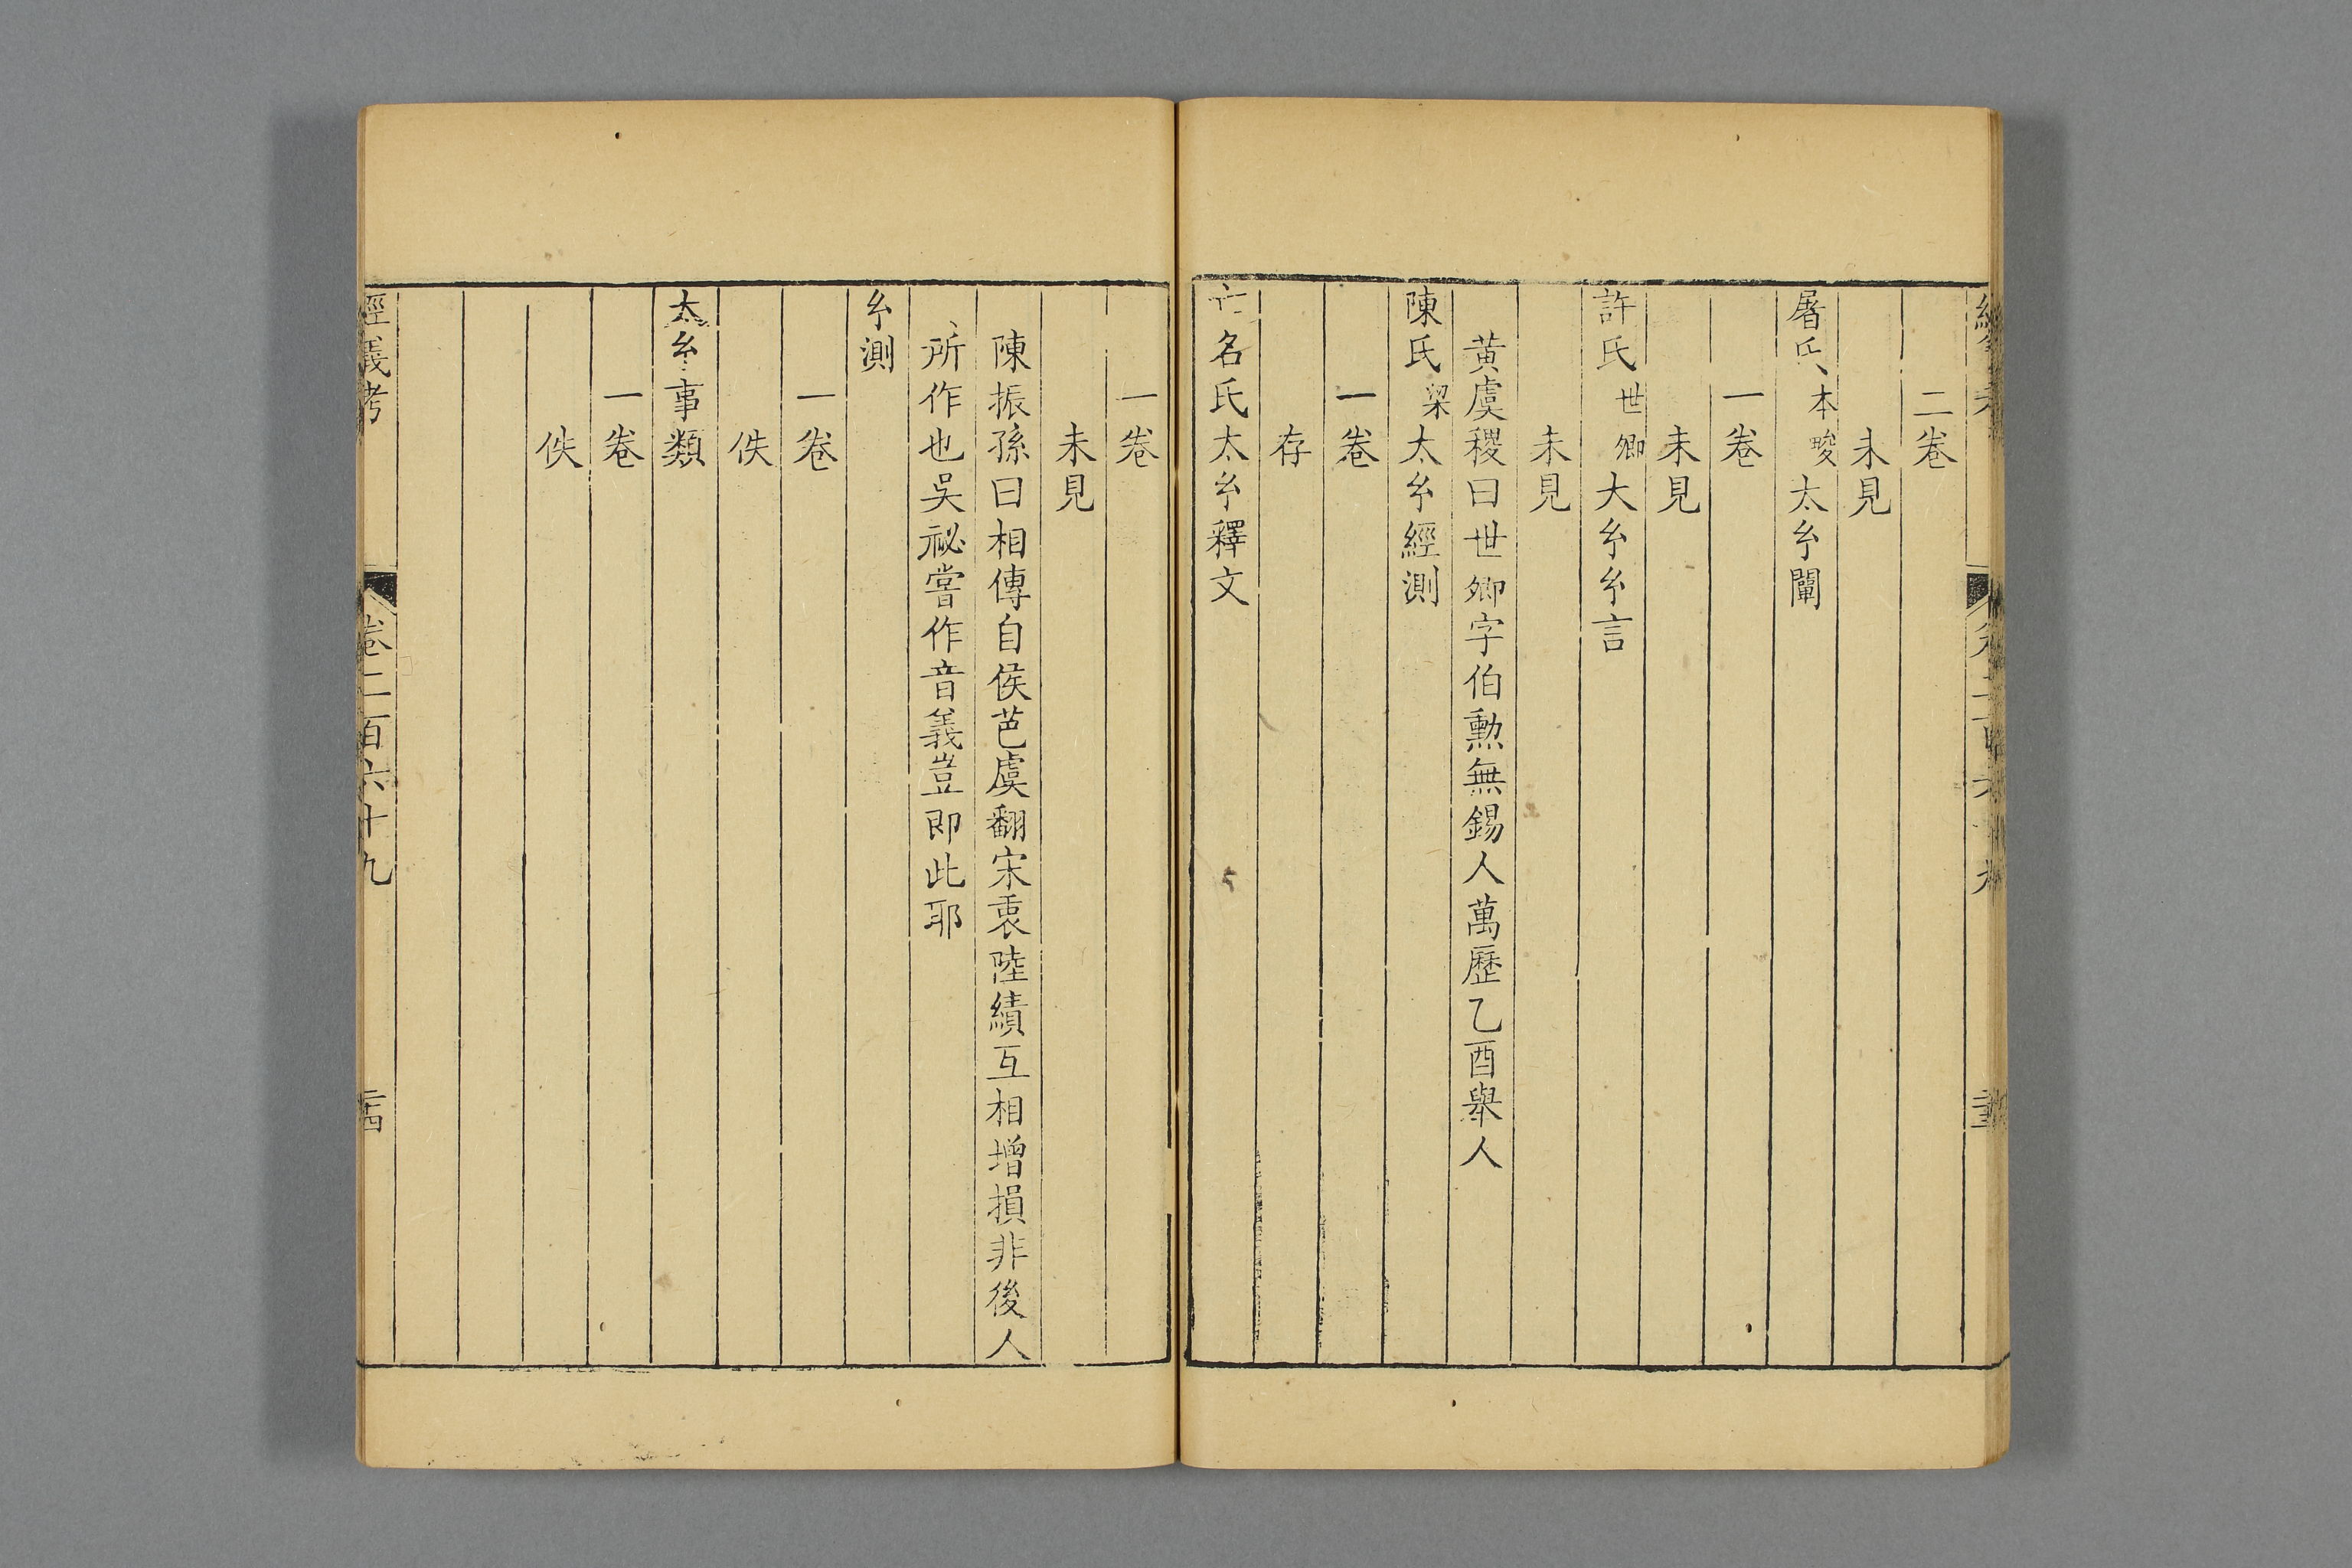 二卷
未見
屠氏本畯太玄闡
一卷
未見
許氏世卿大玄玄言
未見
黃虞稷曰世卿字伯勲無錫人萬歷乙酉舉人
陳氏梁太玄經測
一卷
存
亡名氏太玄釋文
一卷
未見
陳振孫曰相傳自侯芭虞翻宋衷陸績互相增損非後人
所作也吳祕嘗作音義豈即此耶
玄測
一卷
佚
太玄事類
一卷
佚
經義考 卷二百六十九